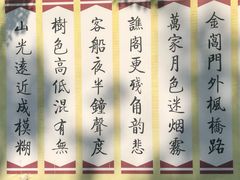 金閶門外楓橋路
萬家月色迷烟霧
譙閣更殘角韵悲
客船夜半鐘聲度
樹色高低混有無
山光遠近成模糊